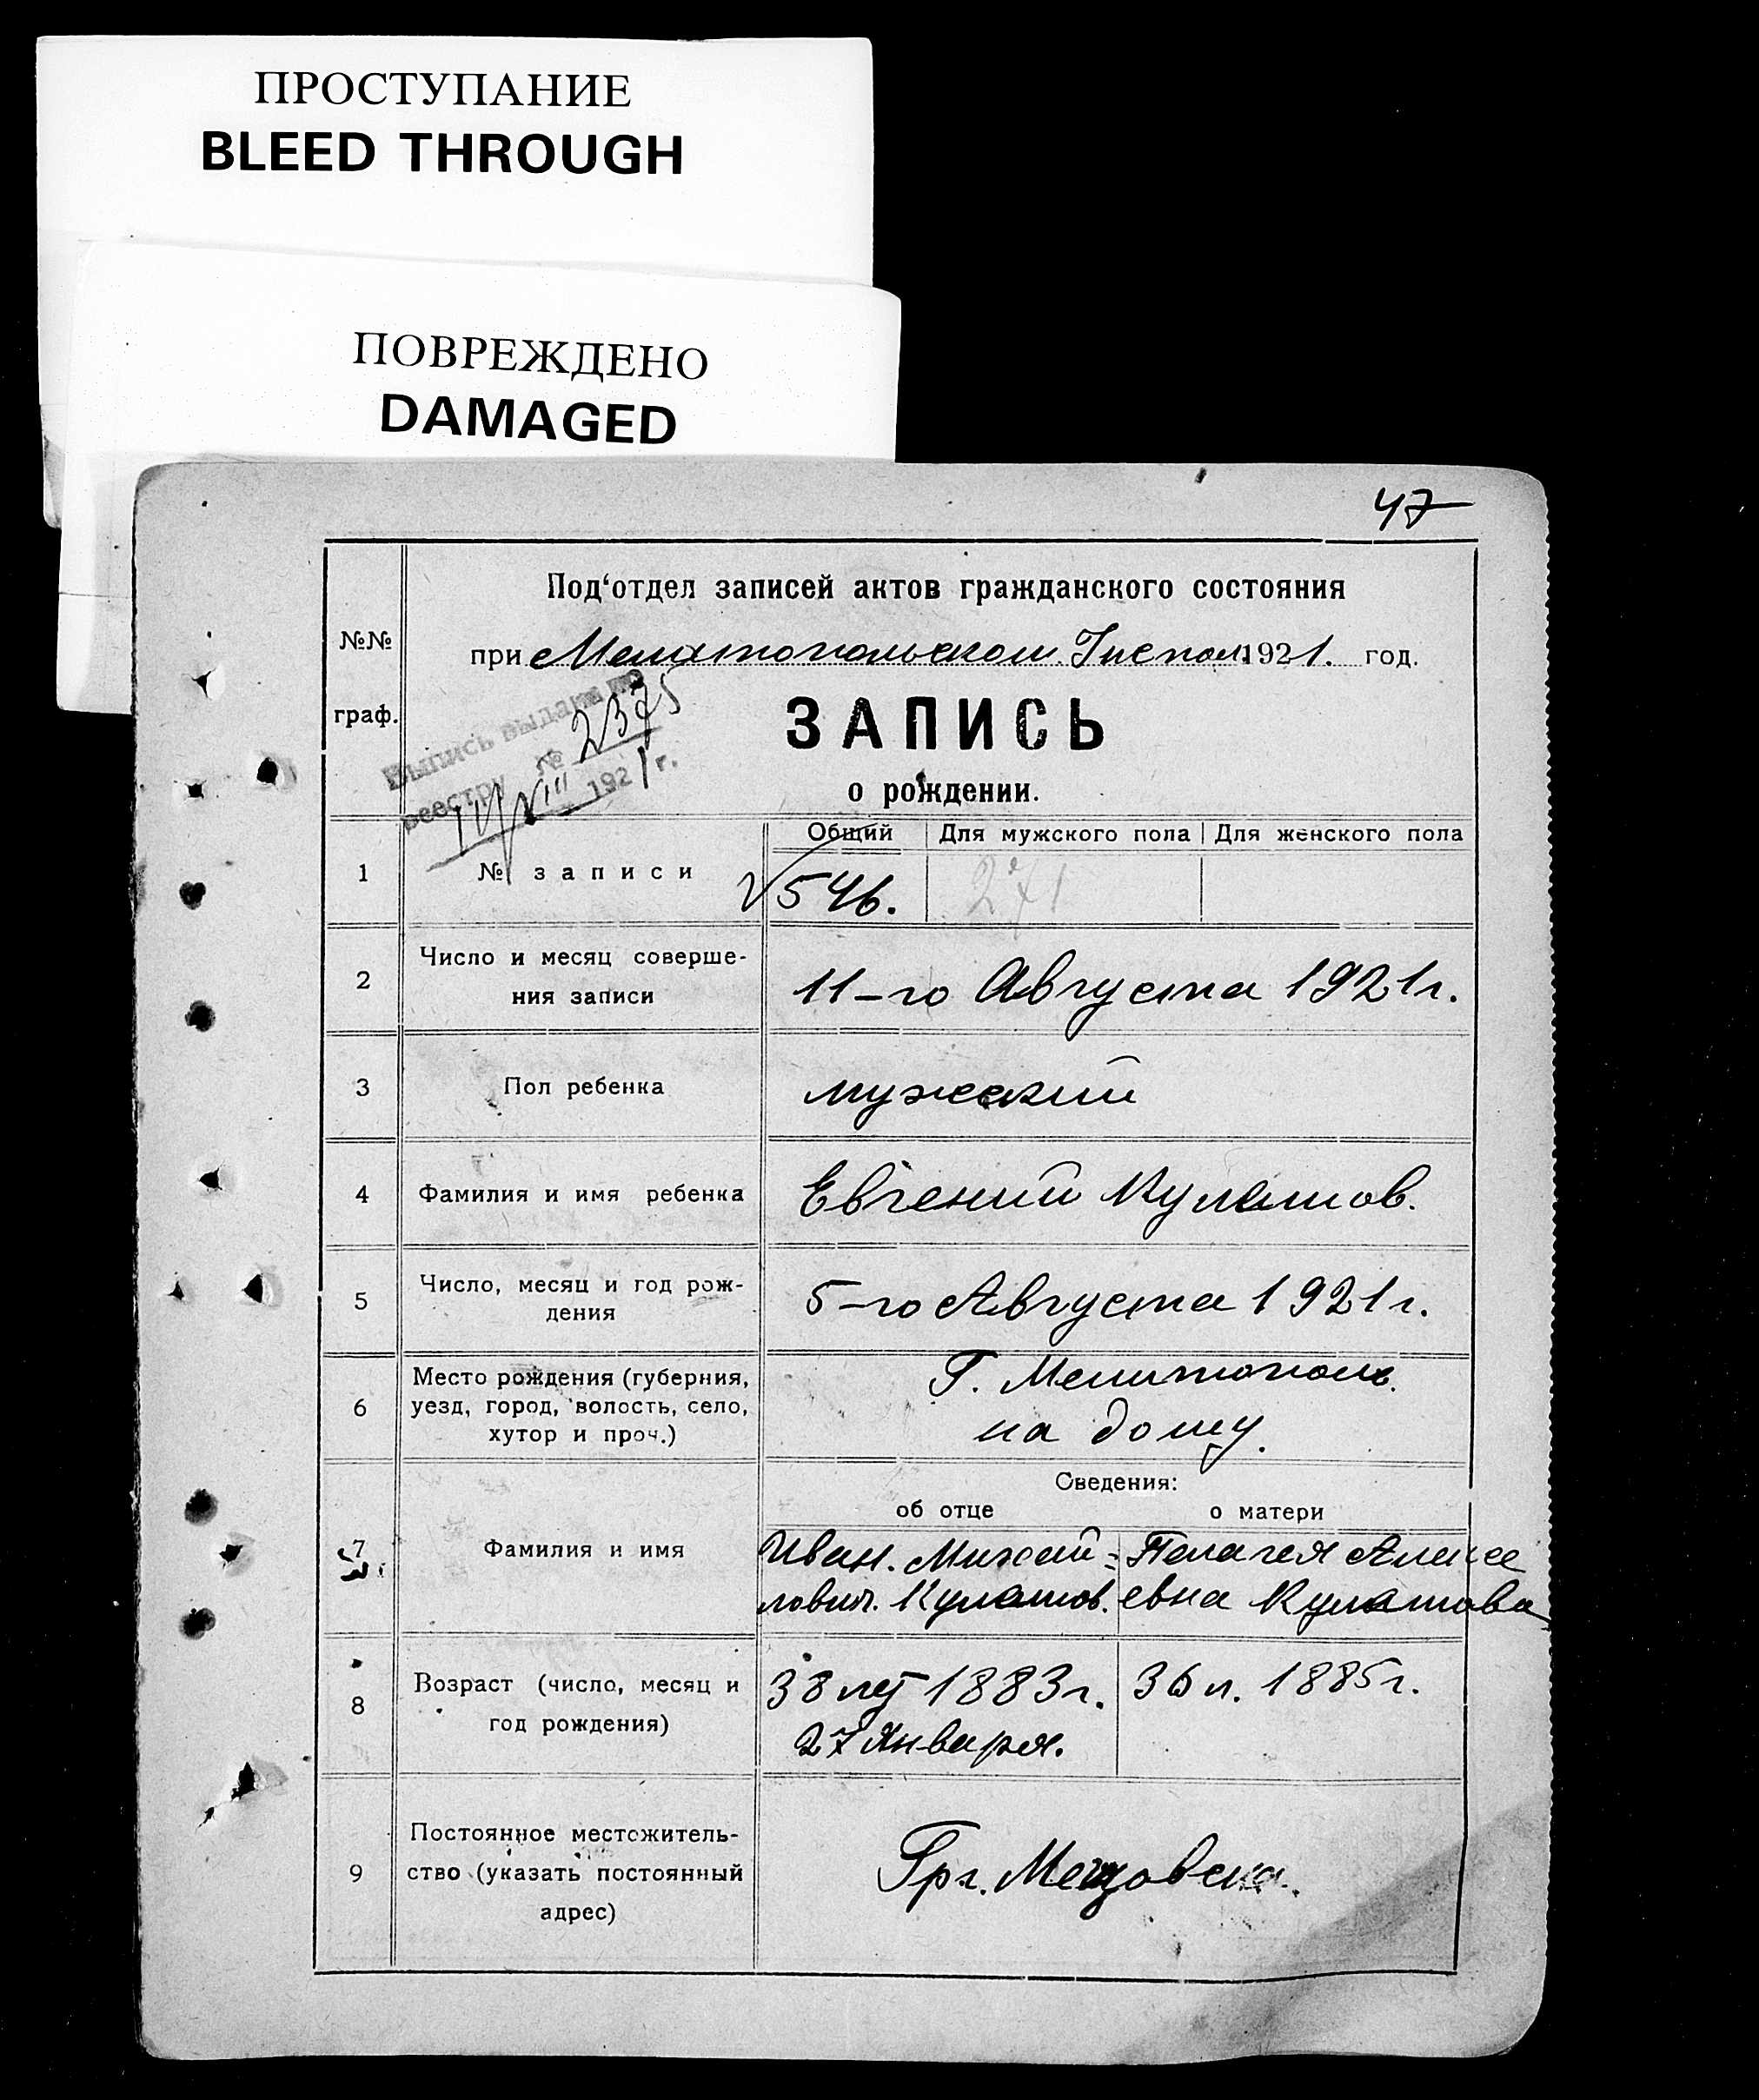 ПРОСТУПАНИЕ
BLEED THROUGH
ПОВРЕЖДЕНО
DAMAGED
47
Под‘отдел записей актов гражданского состояния
№№
граф.
при Мелитопольском 1921. год.
Выпись выдана по
реестру № 2375
1921 г.
ЗАПИСЬ
о рождении.
Общий Для мужского пола Для женского пола
1 № записи 546. 271
2 Число и месяц соверше-
ния записи
11-го Августа 1921г.
3 Пол ребенка мужеский
4 Фамилия и имя ребенка Евгений Куматов.
5 Число, месяц и год рож-
дения
5-го Августа 1921г.
6 Место рождения (губерния,
уезд, город, волость, село,
хутор и проч.)
Г. Мелитополь.
на дому.
Сведения:
об отце о матери
7 Фамилия и имя
Иван. Михай-
лович. Куматов.
Пелагея Алексе
евна Куматова
8 Возраст (число, месяц и
год рождения)
38 лет 1883г.
27 Января.
36 л. 1885г.
9 Постоянное местожитель-
ство (указать постоянный
адрес)
Гр.г.